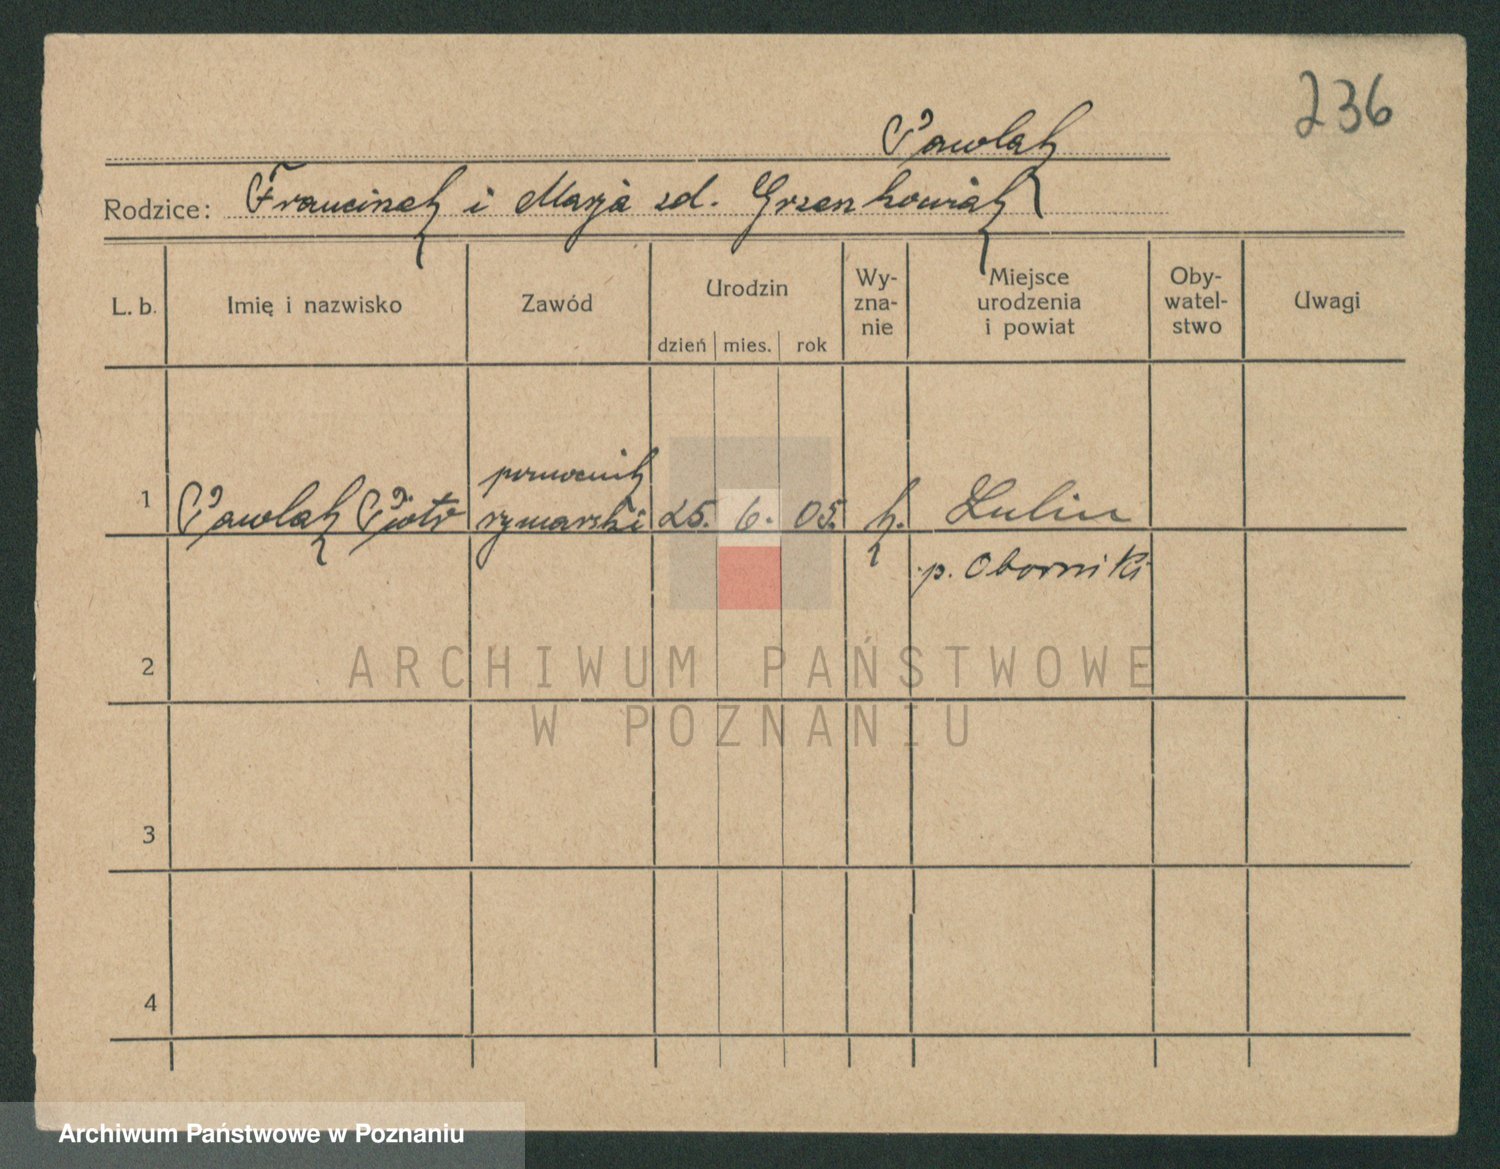 236
Pawlak
Rodzice: Franciszek i Marja zd. Grzeszkowiak
L. b. Imię i nazwisko Zawód Urodzin dzień mies. rok Wy-zna-nie Miejsce urodzenia i powiat Oby-watel-stwo Uwagi
pomocnik
1 Pawlak Piotr rymarski 25. 6. 05. k. Lulin
p. Oborniki
2
ARCHIWUM PAŃSTWOWE
W POZNANIU
3
4
Archiwum Państwowe w Poznaniu